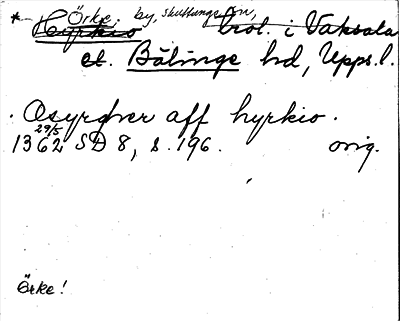 * Örke, by, Skuttunge sn,
Hyrkio trol. i Vaksala
el. Bälinge hd, Upps. l.
. Osyrdher aff hyrkio .
1362 29/5 SD 8, s. 196. orig.
Örke!